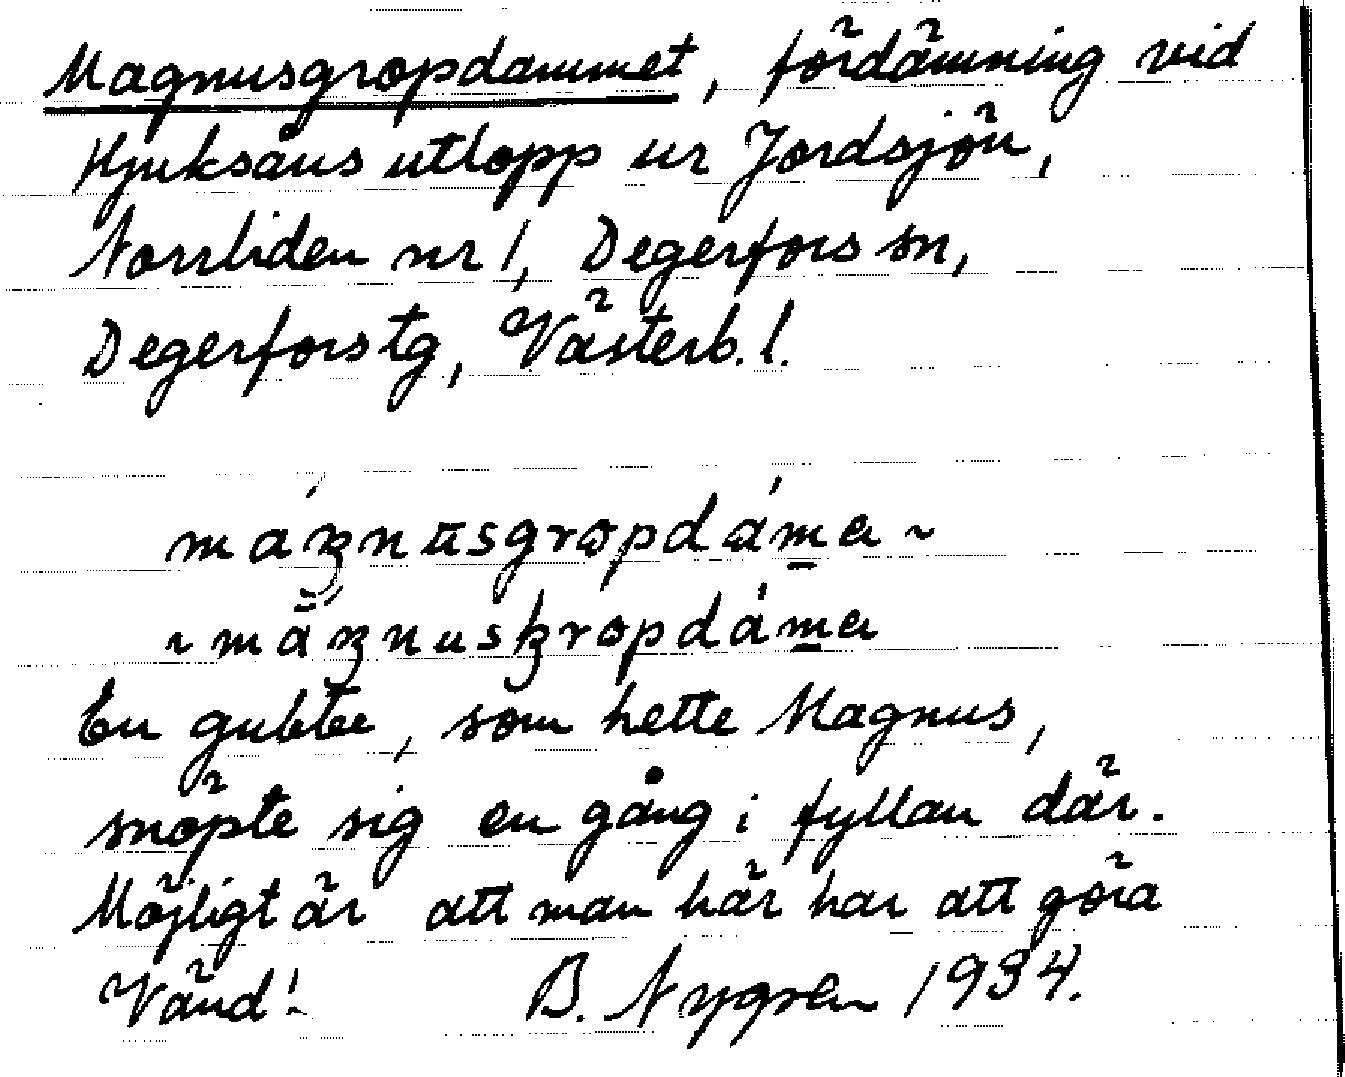 Magnusgropdammet, fördämning vid
Hjuksåns utlopp ur Jordsjön,
Norrliden nr 1, Degerfors sn,
Degerfors tg, Västerb. l.
En gubbe, som hette Magnus,
snöpte sig en gång i fyllan där.
Möjligt är att man här har att göra
Vänd! B. Nygren 1934.